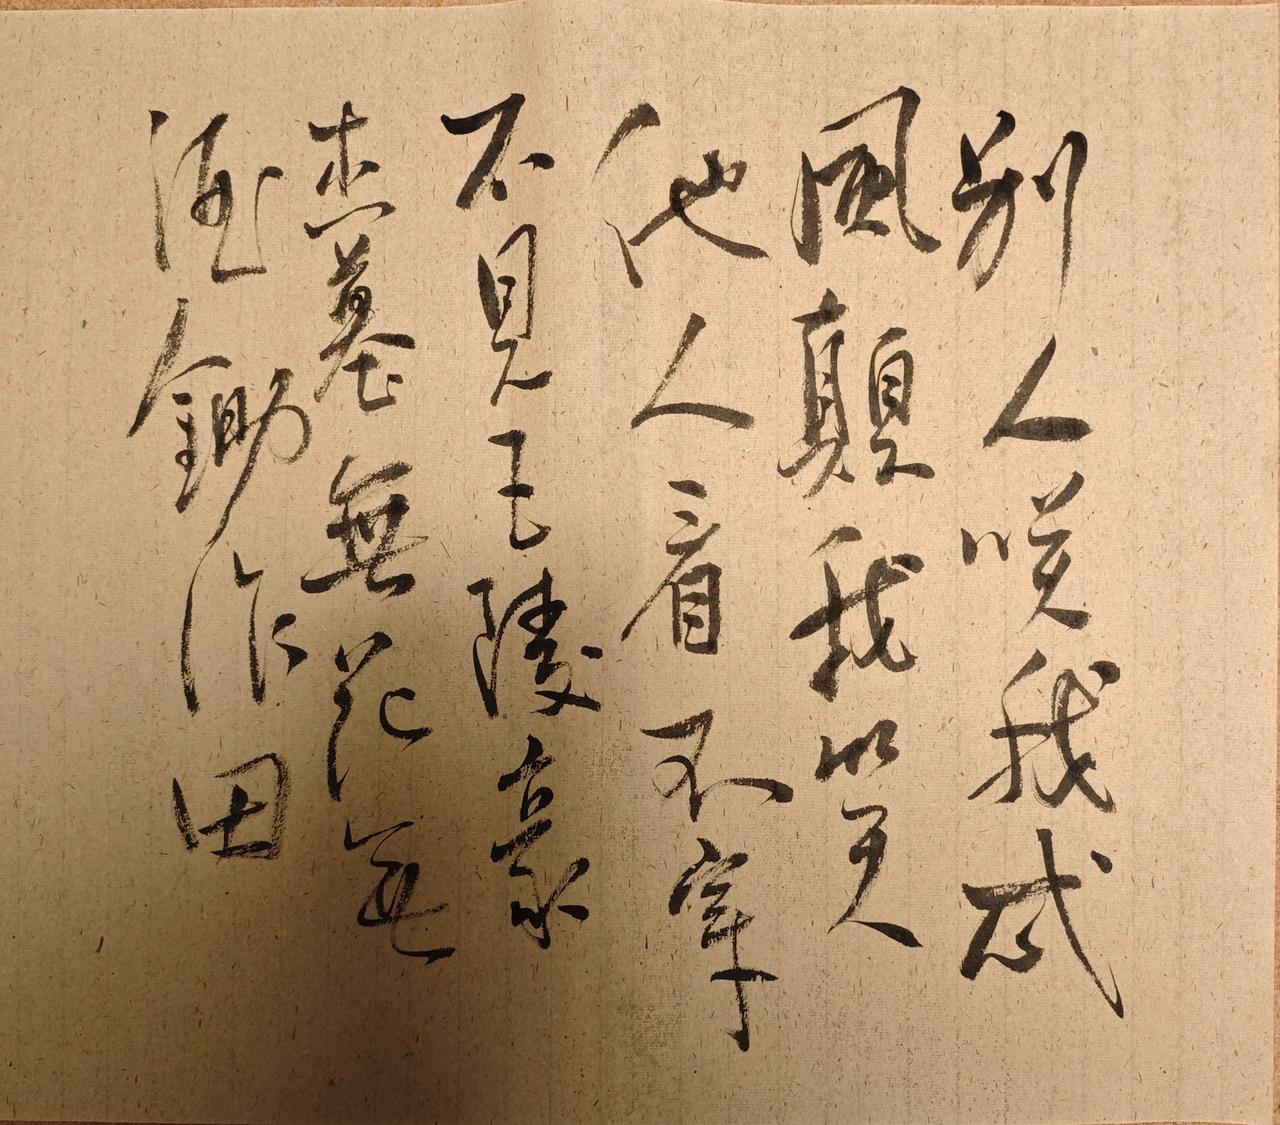 別人咲我忒
風顛我咲
他人看不穿
不見五陵豪
杰墓無花無
酒鋤作田